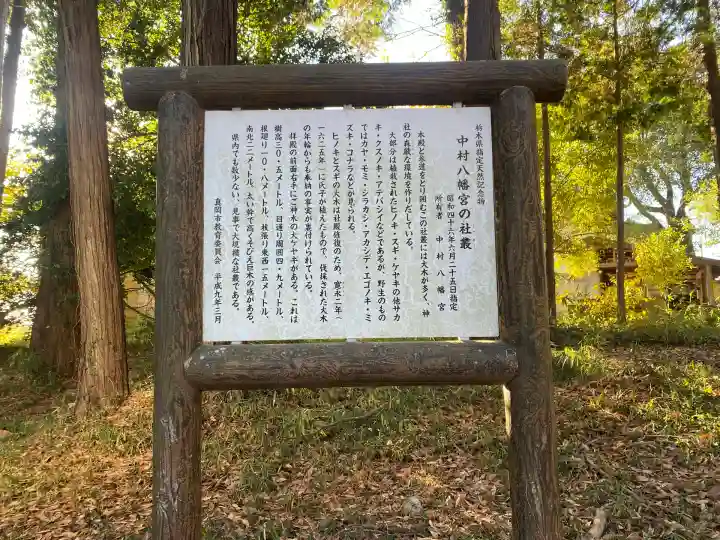 栃木県指定天然記念物
中村八幡宮の社叢
昭和四十六年六月二十五日指定
所有者　中村八幡宮
本殿と参道をとり囲むこの社叢には大木が多く、神
社の森厳な環境を作りだしている。
大部分は植栽されたヒノキ・スギ・ケヤキの他サカ
キ・クスノキ・アデバシイなどであるが、野生のもの
ではカヤ・モミ・シラカシ・アカシデ・エゴノキ・ミ
ズキ・コナラなどが見られる。
ヒノキとスギの大木は社殿修復のため、寛永二年（
一六二五年）に氏子が植えたもので、伐採された大木
の年輪からも奉納の事実が裏付けられている。
拝殿の前面右手にご神木の大ケヤキがある。これは
樹高三〇・五メートル、目通り周囲四・九メートル、
根廻り一〇・八メートル、枝張り東西一五メートル、
南北二二メートル、太い幹で高くそびえ巨木の感がある。
県内でも数少ない、見事で大規模な社叢である。
真岡市教育委員会　平成九年三月